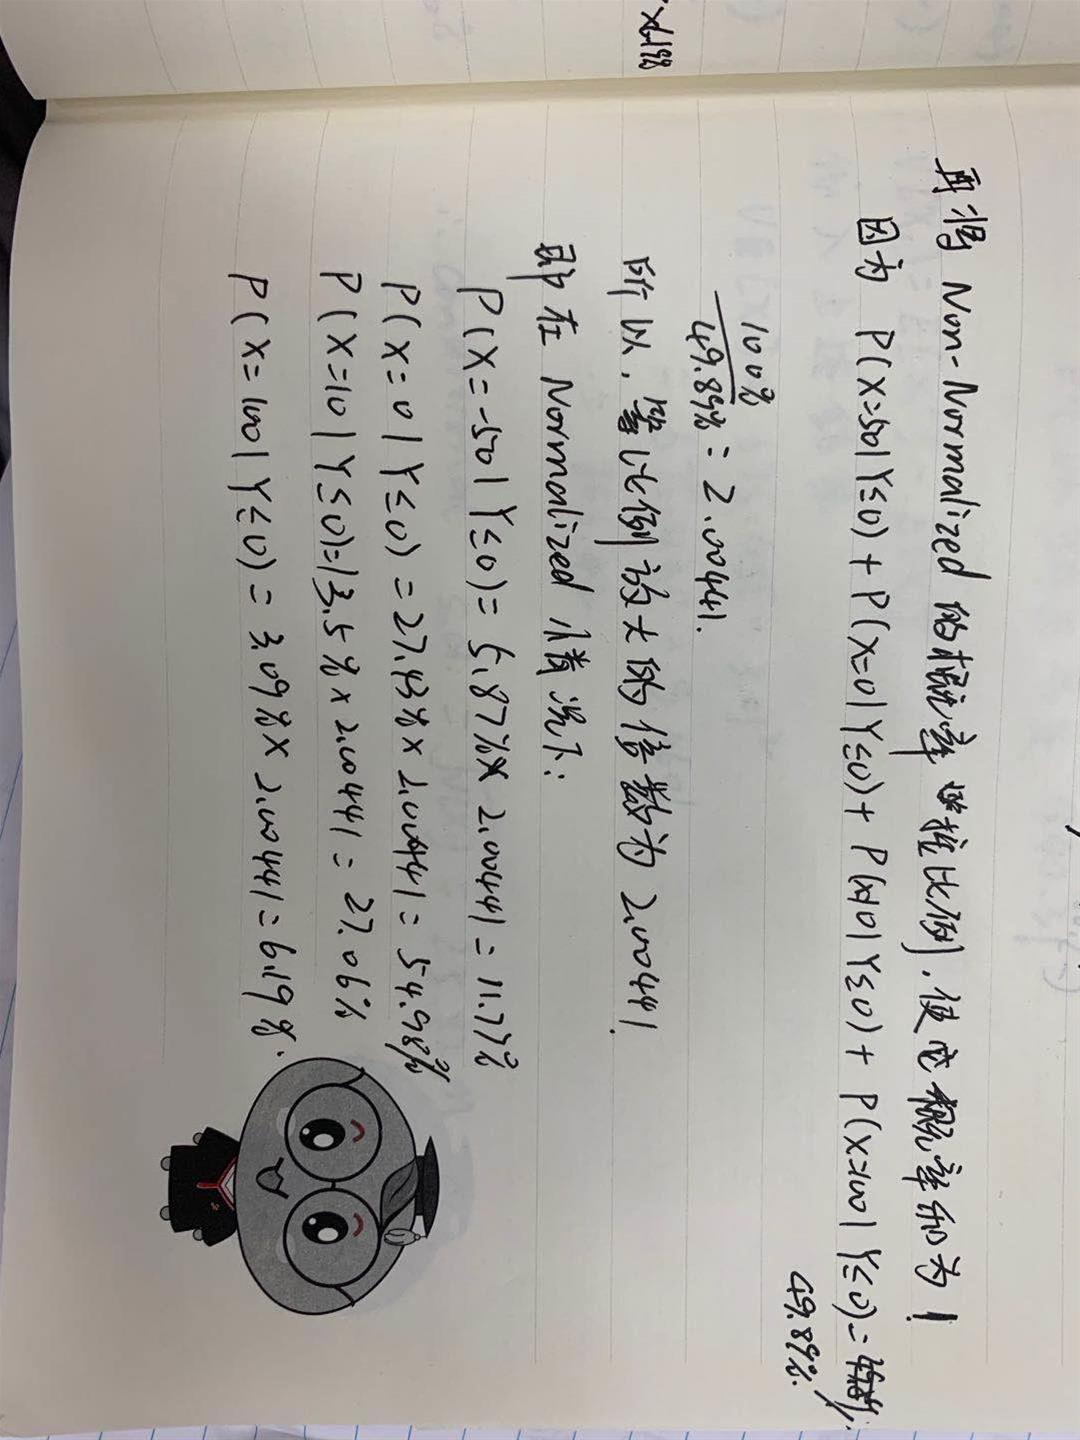 x198
再将 Non-Normalized 的概率 按比例, 使它概率和为1
因为 P(X=50|Y≤0) + P(X=0|Y≤0) + P(X=10|Y≤0) + P(X=100|Y≤0) =
49.89%.
100%/49.89% = 2.00441.
所以, 按比例放大的倍数为 2.00441.
即在 Normalized 情况下:
P(X=-50|Y≤0) = 5.87% x 2.00441 = 11.77%
P(X=0|Y≤0) = 27.43% x 2.00441 = 54.98%
P(X=10|Y≤0)=13.5% x 2.00441 = 27.06%
P(X=100|Y≤0) = 3.09% x 2.00441 = 6.19%.